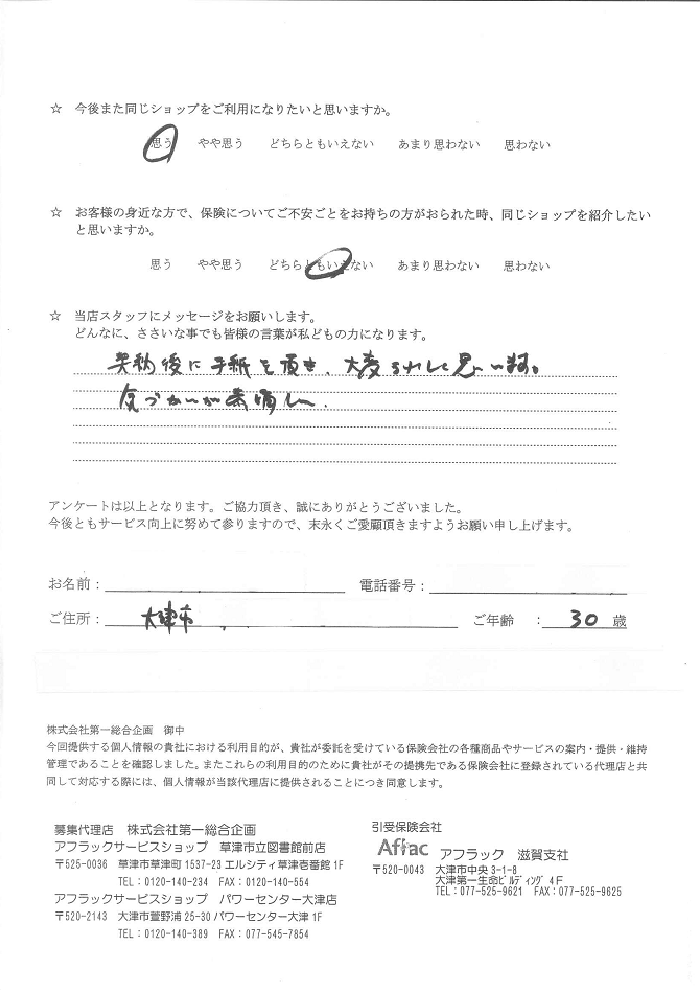 ☆ 今後また同じショップをご利用になりたいと思いますか。
思う やや思う どちらともいえない あまり思わない 思わない
☆ お客様の身近な方で、保険についてご不安ごとをお持ちの方がおられた時、同じショップを紹介したい
と思いますか。
思う やや思う どちらともいえない あまり思わない 思わない
☆ 当店スタッフにメッセージをお願いします。
どんなに、ささいな事でも皆様の言葉が私どもの力になります。
契約後に手紙を頂き、大変うれしく思います。
気づかいが素晴しい。
アンケートは以上となります。ご協力頂き、誠にありがとうございました。
今後ともサービス向上に努めて参りますので、末永くご愛顧頂きますようお願い申し上げます。
お名前： 電話番号：
ご住所： 大津市 ご年齢 ： 30 歳
株式会社第一総合企画 御中
今回提供する個人情報の貴社における利用目的が、貴社が委託を受けている保険会社の各種商品やサービスの案内・提供・維持
管理であることを確認しました。またこれらの利用目的のために貴社がその提携先である保険会社に登録されている代理店と共
同して対応する際には、個人情報が当該代理店に提供されることにつき同意します。
募集代理店 株式会社第一総合企画
アフラックサービスショップ 草津市立図書館前店
〒525-0036 草津市草津町1537-23 エルシティ草津壱番館1F
TEL：0120-140-234 FAX：0120-140-554
アフラックサービスショップ パワーセンター大津店
〒520-2143 大津市萱野浦25-30 パワーセンター大津 1F
TEL：0120-140-389 FAX：077-545-7854
引受保険会社
Aflac アフラック 滋賀支社
〒520-0043 大津市中央3-1-8
大津第一生命ビルディング 4F
TEL：077-525-9621 FAX：077-525-9625